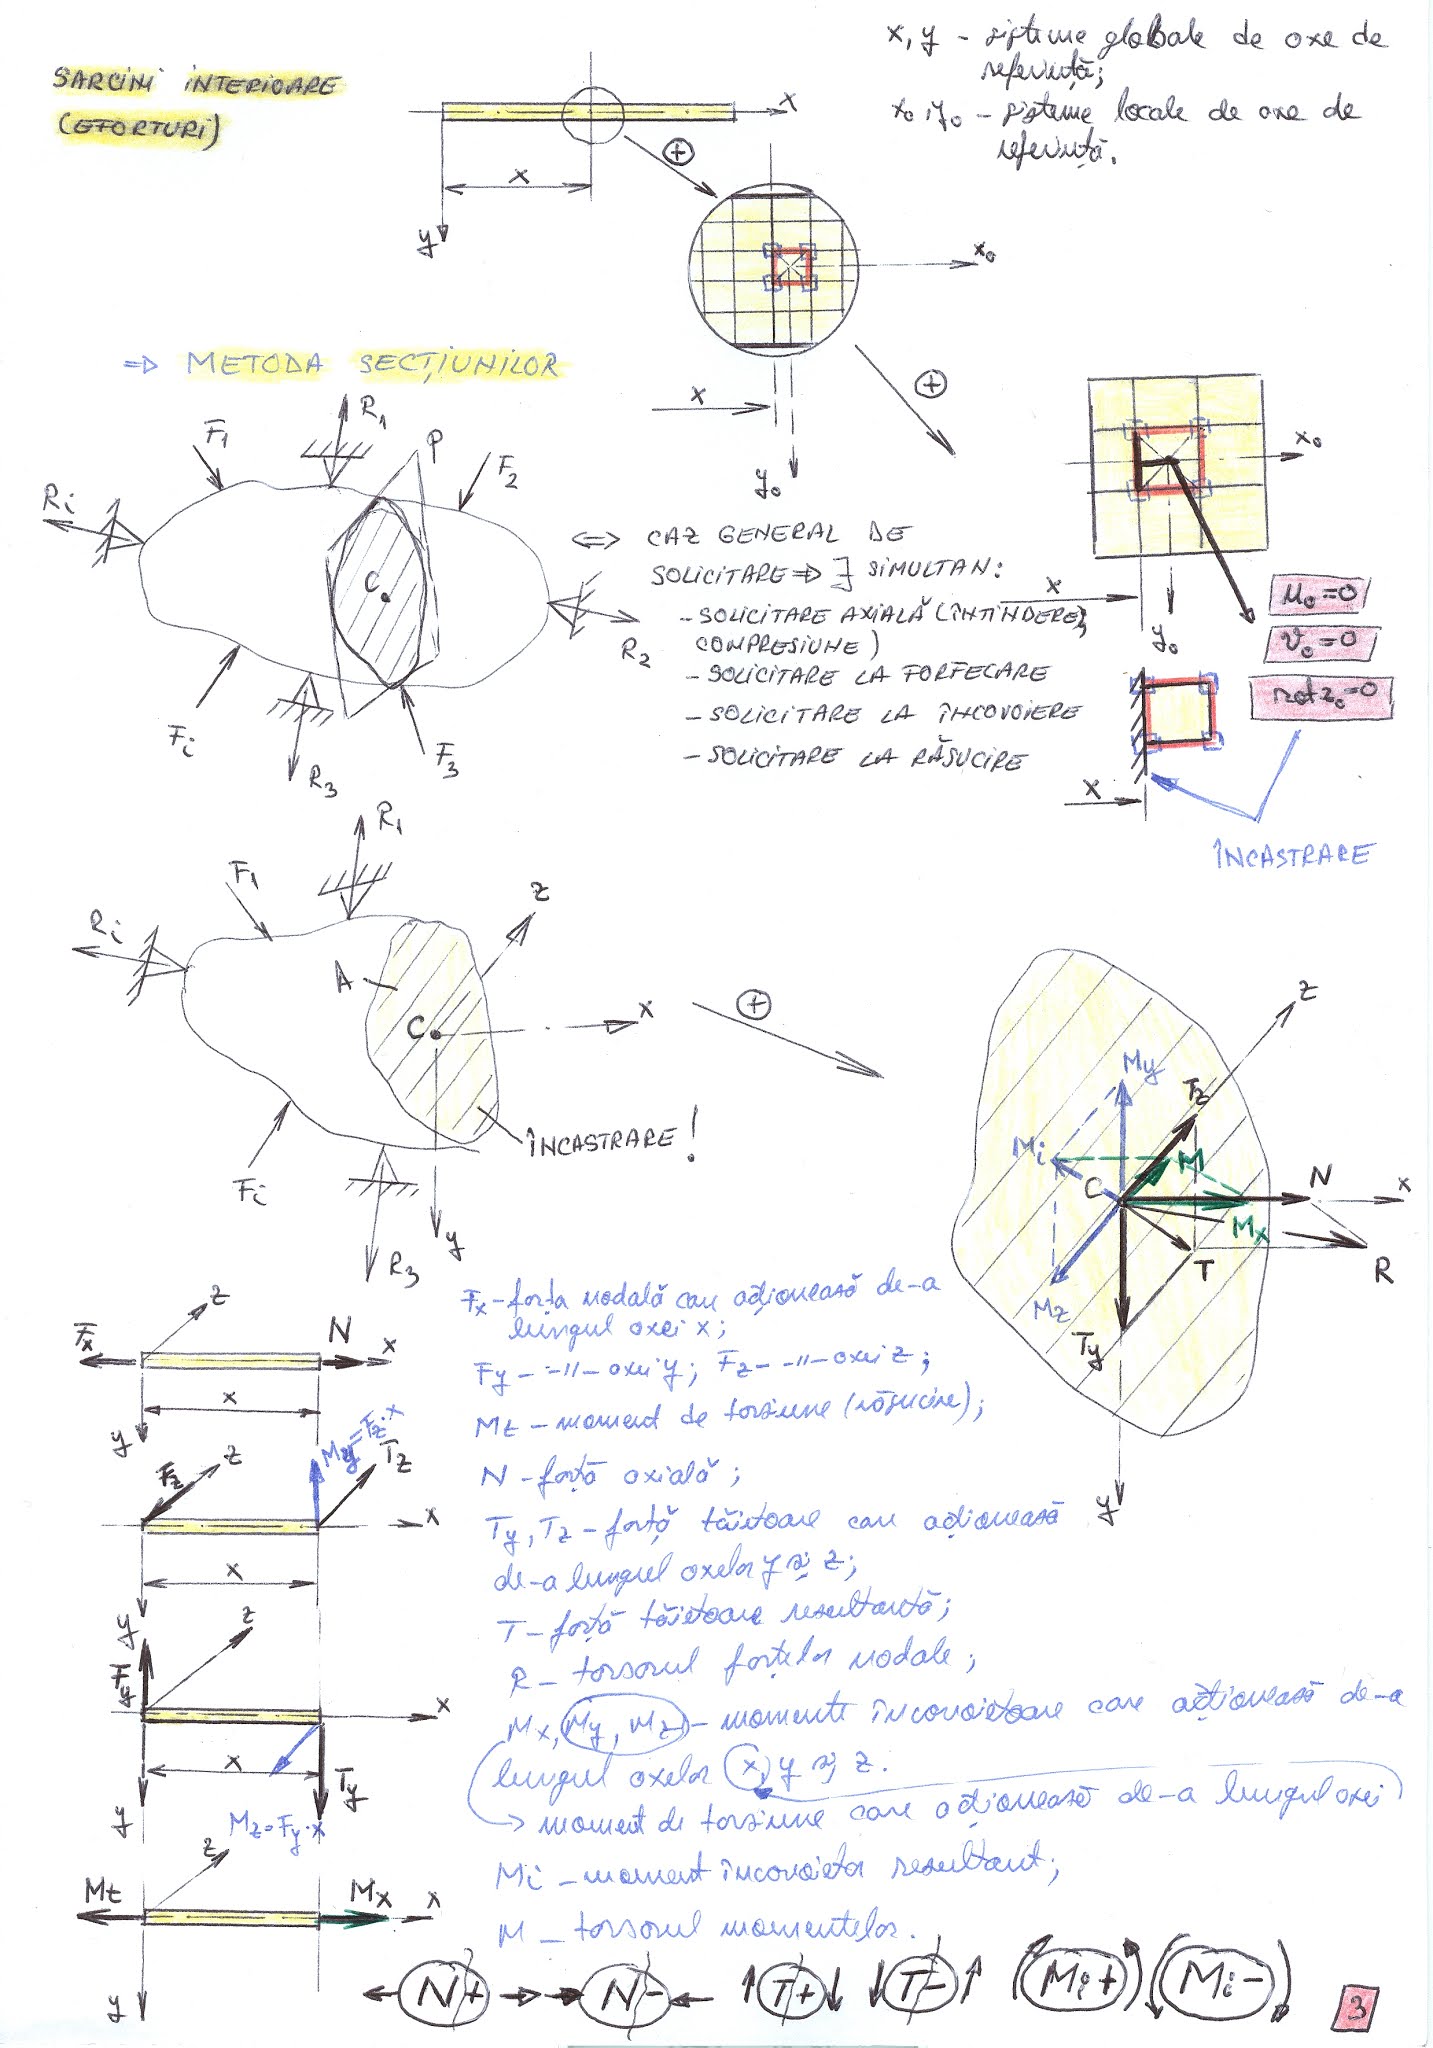 SARCINI INTERIOARE
(EFORTURI)
x, y - sisteme globale de axe de
referință;
x₀, y₀ - sisteme locale de axe de
referință.
x
x
y
+
x₀
x
y₀
+
⇒ METODA SECȚIUNILOR
F₁
R₁
P
F₂
Ri
C
R₂
Fi
R₃
F₃
⇔ CAZ GENERAL DE
SOLICITARE ⇒ ∃ SIMULTAN:
- SOLICITARE AXIALĂ (ÎNTINDERE,
COMPRESIUNE)
- SOLICITARE LA FORFECARE
- SOLICITARE LA ÎNCOVOIERE
- SOLICITARE LA RĂSUCIRE
x₀
x
y₀
u₀=0
v₀=0
rotz₀=0
x
ÎNCASTRARE
R₁
F₁
Ri
A
z
C
x
ÎNCASTRARE!
Fi
R₃
y
+
z
My
Tz
Mi
M
C
N
x
Mx
T
R
Mz
Ty
y
Fx
z
N
x
x
y
Fz
z
My=Fz·x
Tz
x
x
y
Fy
z
x
x
Ty
y
Mz=Fy·x
Mt
z
Mx
x
y
Fx - forța nodală care acționează de-a
lungul axei x;
Fy - -"- axei y; Fz - -"- axei z;
Mt - moment de torsiune (răsucire);
N - forță axială;
Ty, Tz - forță tăietoare care acționează
de-a lungul axelor y și z;
T - forță tăietoare resultantă;
R - torsorul forțelor nodale;
Mx, My, Mz - momente încovoietoare care acționează de-a
lungul axelor x, y și z.
→ moment de torsiune care acționează de-a lungul axei
Mi - moment încovoietor resultant;
M - torsorul momentelor.
N+ N- T+ T- Mi+ Mi-
3